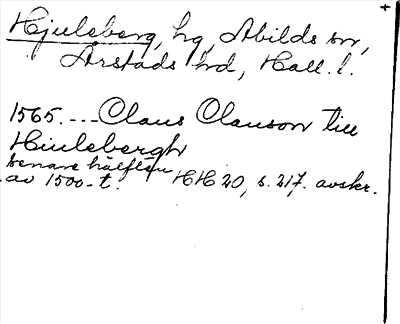 Hjuleberg, hg, Abilds sn,
Årstads hd, Hall. l.
1565. --- Claus Clauson till
Hiulebergh
senare hälften
av 1500-t. HH 20, s. 217. avskr.